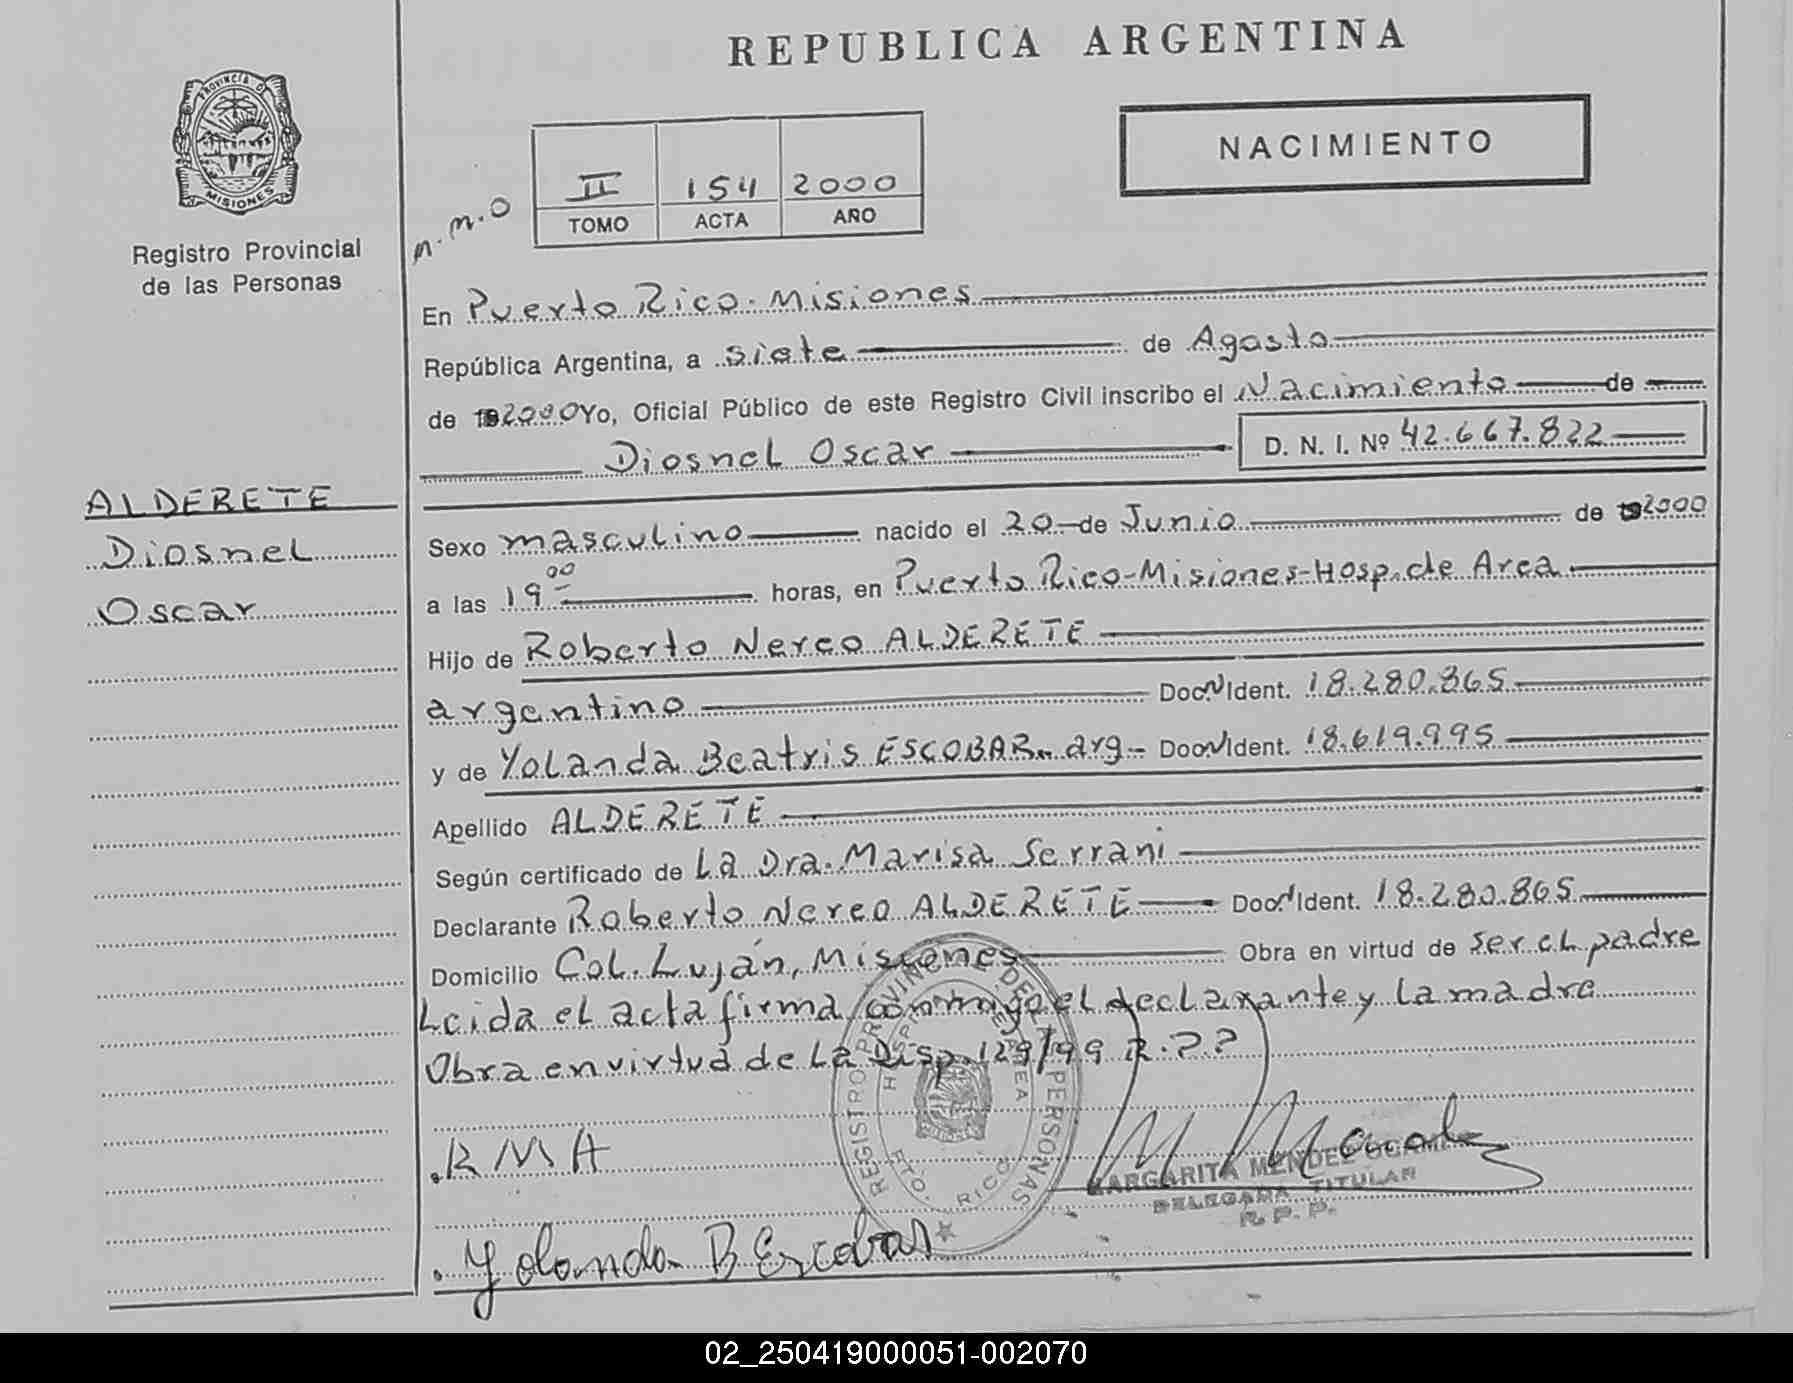 REPUBLICA ARGENTINA
NACIMIENTO
PROVINCIA D MISIONES
Registro Provincial
de las Personas
n.n.o
II 154 2000
TOMO ACTA AÑO
En Puerto Rico. Misiones
República Argentina, a siete de Agosto
de 192000 Yo, Oficial Público de este Registro Civil inscribo el Nacimiento de
Diosnel Oscar D. N. I. Nº 42.667.822
ALDERETE
Diosnel
Oscar
Sexo masculino nacido el 20 de Junio de 192000
a las 19 00 horas, en Puerto Rico-Misiones-Hosp. de Area
Hijo de Roberto Nereo ALDERETE
argentino Doc. N Ident. 18.280.865
y de Yolanda Beatris ESCOBAR. arg- Doc. N Ident. 18.619.995
Apellido ALDERETE
Según certificado de La Dra. Marisa Serrani
Declarante Roberto Nereo ALDERETE Doc. N Ident. 18.280.865
Domicilio Col. Luján, Misiones Obra en virtud de ser el padre
Leida el acta firma conmigo el declarante y la madre
Obra en virtud de La Disp. 129/99 R.P.P
REGISTRO PROVINCIAL DE LAS PERSONAS
HOSPITAL DE AREA
PTO. RICO
RMA
MARGARITA MENDEZ OCAMPO
DELEGADA TITULAR
R. P. P.
Yolanda B Escobar
02_250419000051-002070